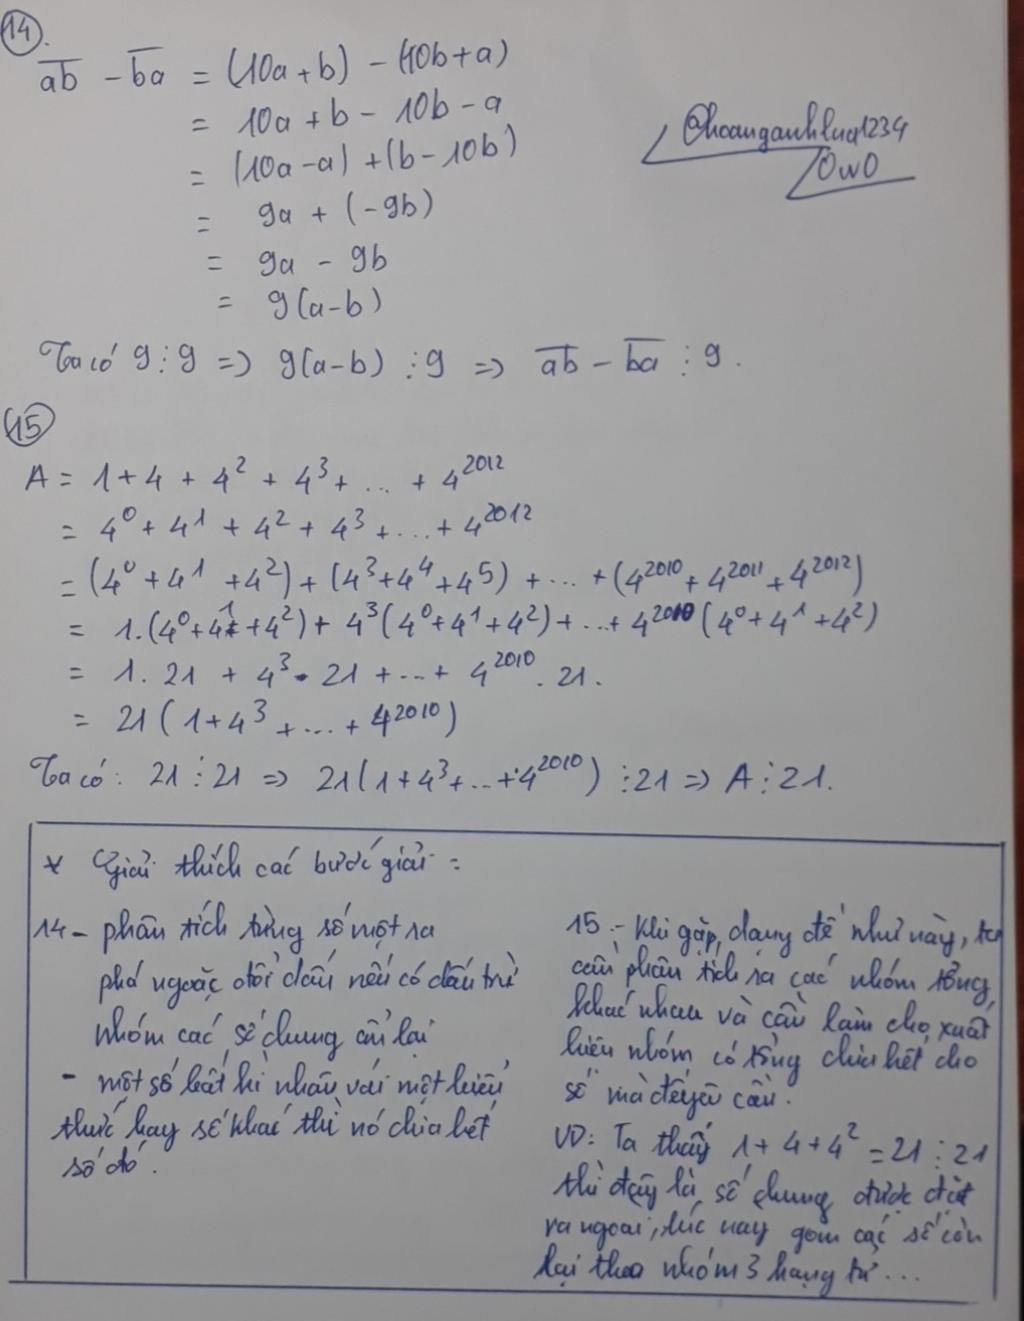 14.
ab̅ - ba̅ = (10a + b) - (10b + a)
= 10a + b - 10b - a
= (10a - a) + (b - 10b)
= 9a + (-9b)
= 9a - 9b
= 9(a - b)
@hoanganhlua1234
OwO
Ta có 9 ⋮ 9 => 9(a-b) ⋮ 9 => ab̅ - ba̅ ⋮ 9.
15
A = 1 + 4 + 4² + 4³ + ... + 4²⁰¹²
= 4⁰ + 4¹ + 4² + 4³ + ... + 4²⁰¹²
= (4⁰ + 4¹ + 4²) + (4³ + 4⁴ + 4⁵) + ... + (4²⁰¹⁰ + 4²⁰¹¹ + 4²⁰¹²)
= 1.(4⁰ + 4¹ + 4²) + 4³(4⁰ + 4¹ + 4²) + ... + 4²⁰¹⁰(4⁰ + 4¹ + 4²)
= 1. 21 + 4³ . 21 + ... + 4²⁰¹⁰ . 21.
= 21(1 + 4³ + ... + 4²⁰¹⁰)
Ta có: 21 ⋮ 21 => 21(1 + 4³ + ... + 4²⁰¹⁰) ⋮ 21 => A ⋮ 21.
* Giải thích các bước giải:
14 - phân tích từng số một ra
phá ngoặc đổi dấu nếu có dấu trừ
nhóm các số chung còn lại
- một số bất kì nhân với một biểu
thức hay số khác thì nó chia hết
số đó.
15. - Khi gặp dạng đề như này, ta
cần phân tích ra các nhóm tổng
khác nhau và cần làm cho xuất
hiện nhóm có tổng chia hết cho
số mà đề yêu cầu.
VD: Ta thấy 1 + 4 + 4² = 21 ⋮ 21
thì đây là số chung được đặt
ra ngoài, lúc này gom các số còn
lại theo nhóm 3 hạng tử...